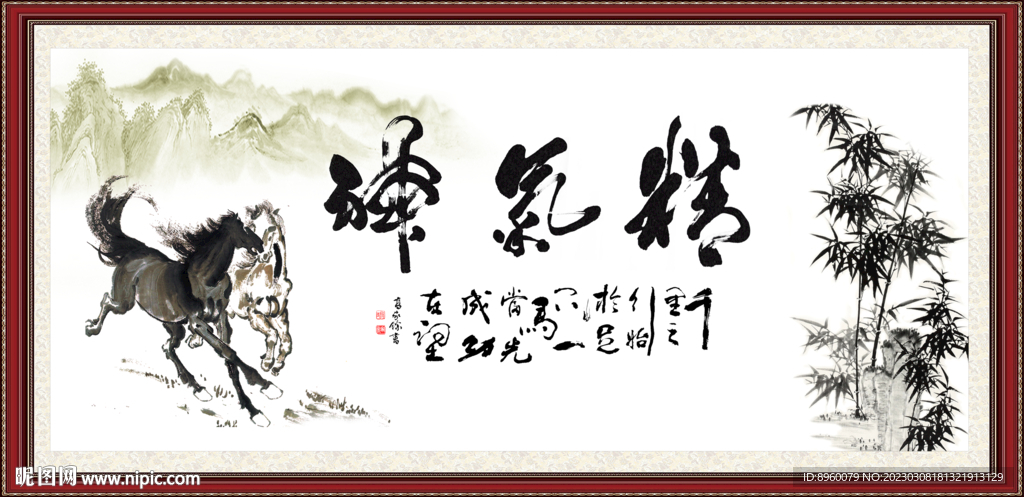 精氣神
千
里之
行始
於足
下一
馬
當先
成功
在望
昵图网 www.nipic.com
ID:8960079 NO:20230308181321913129